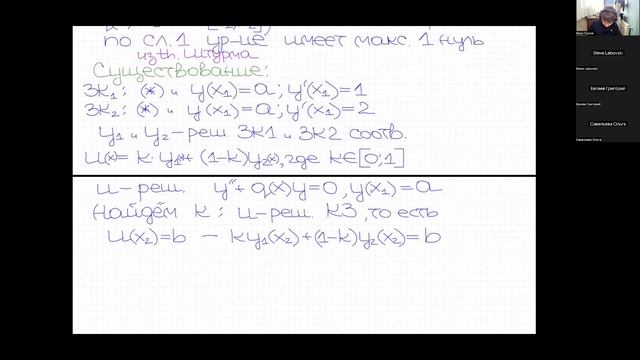 по сл. 1 ур-ие имеет макс. 1 нуль
из th. Штурма
Существование:
ЗК₁: (*) и y(x₁)=a; y'(x₁)=1
ЗК₂: (*) и y(x₁)=a; y'(x₁)=2
y₁ и y₂ – реш. ЗК1 и ЗК2 соотв.
u(x)= k·y₁(x)+(1-k)y₂(x), где k∈[0;1]
u – реш. y''+q(x)y=0, y(x₁)=a
Найдём k: u – реш. КЗ, то есть
u(x₂)=b – ky₁(x₂)+(1-k)y₂(x₂)=b
Steve Labovski
Steve Labovski
Евсеев Григорий
Евсеев Григорий
Савельева Ольга
Савельева Ольга